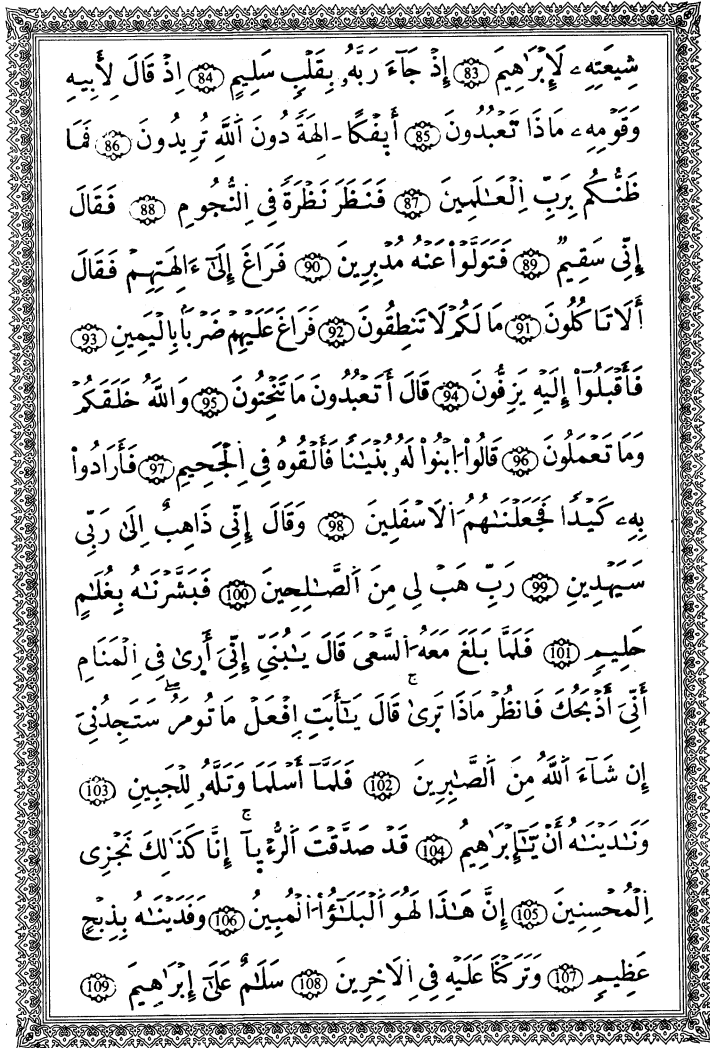 شِيعَتِهِۦ لَإِبْرَٰهِيمَ 83 إِذْ جَآءَ رَبَّهُۥ بِقَلْبٖ سَلِيمٍ 84 اِذْ قَالَ لِأَبِيهِ
وَقَوْمِهِۦ مَاذَا تَعْبُدُونَ 85 أَئِفْكًا ـ اِلِهَةٗ دُونَ اَللَّهِ تُرِيدُونَ 86 فَمَا
ظَنُّكُم بِرَبِّ اِلْعَٰلَمِينَ 87 فَنَظَرَ نَظْرَةٗ فِي اِلنُّجُومِ 88 فَقَالَ
إِنِّي سَقِيمٞ 89 فَتَوَلَّوْاْ عَنْهُ مُدْبِرِينَ 90 فَرَاغَ إِلَىٰٓ ءَالِهَتِهِمْ فَقَالَ
أَلَا تَاكُلُونَ 91 مَا لَكُمْ لَا تَنطِقُونَ 92 فَرَاغَ عَلَيْهِمْ ضَرْبَاۢ بِالْيَمِينِ 93
فَأَقْبَلُوٓاْ إِلَيْهِ يَزِفُّونَ 94 قَالَ أَتَعْبُدُونَ مَا تَنْحِتُونَ 95 وَاللَّهُ خَلَقَكُمْ
وَمَا تَعْمَلُونَ 96 قَالُواْ اُبْنُواْ لَهُۥ بُنْيَٰنٗا فَأَلْقُوهُ فِي اِلْجَحِيمِ 97 فَأَرَادُواْ
بِهِۦ كَيْدٗا فَجَعَلْنَٰهُمُ اُلَاسْفَلِينَ 98 وَقَالَ إِنِّي ذَاهِبٌ اِلَىٰ رَبِّي
سَيَهْدِينِ 99 رَبِّ هَبْ لِي مِنَ اَلصَّٰلِحِينَ 100 فَبَشَّرْنَٰهُ بِغُلَٰمٍ
حَلِيمٖ 101 فَلَمَّا بَلَغَ مَعَهُ اُلسَّعْيَ قَالَ يَٰبُنَيِّ إِنِّيَ أَرَىٰ فِي اِلْمَنَامِ
أَنِّيَ أَذْبَحُكَ فَانظُرْ مَاذَا تَرَىٰۚ قَالَ يَٰٓأَبَتِ اِفْعَلْ مَا تُومَرُۖ سَتَجِدُنِيَ
إِن شَآءَ اَللَّهُ مِنَ اَلصَّٰبِرِينَ 102 فَلَمَّآ أَسْلَمَا وَتَلَّهُۥ لِلْجَبِينِ 103
وَنَٰدَيْنَٰهُ أَنْ يَّٰٓإِبْرَٰهِيمُ 104 قَدْ صَدَّقْتَ اَلرُّءْيَآۚ إِنَّا كَذَٰلِكَ نَجْزِي
اِلْمُحْسِنِينَ 105 إِنَّ هَٰذَا لَهُوَ اَلْبَلَٰٓؤُاْ اُلْمُبِينُ 106 وَفَدَيْنَٰهُ بِذِبْحٍ
عَظِيمٖ 107 وَتَرَكْنَا عَلَيْهِ فِي اِلَاخِرِينَ 108 سَلَٰمٌ عَلَىٰٓ إِبْرَٰهِيمَ 109